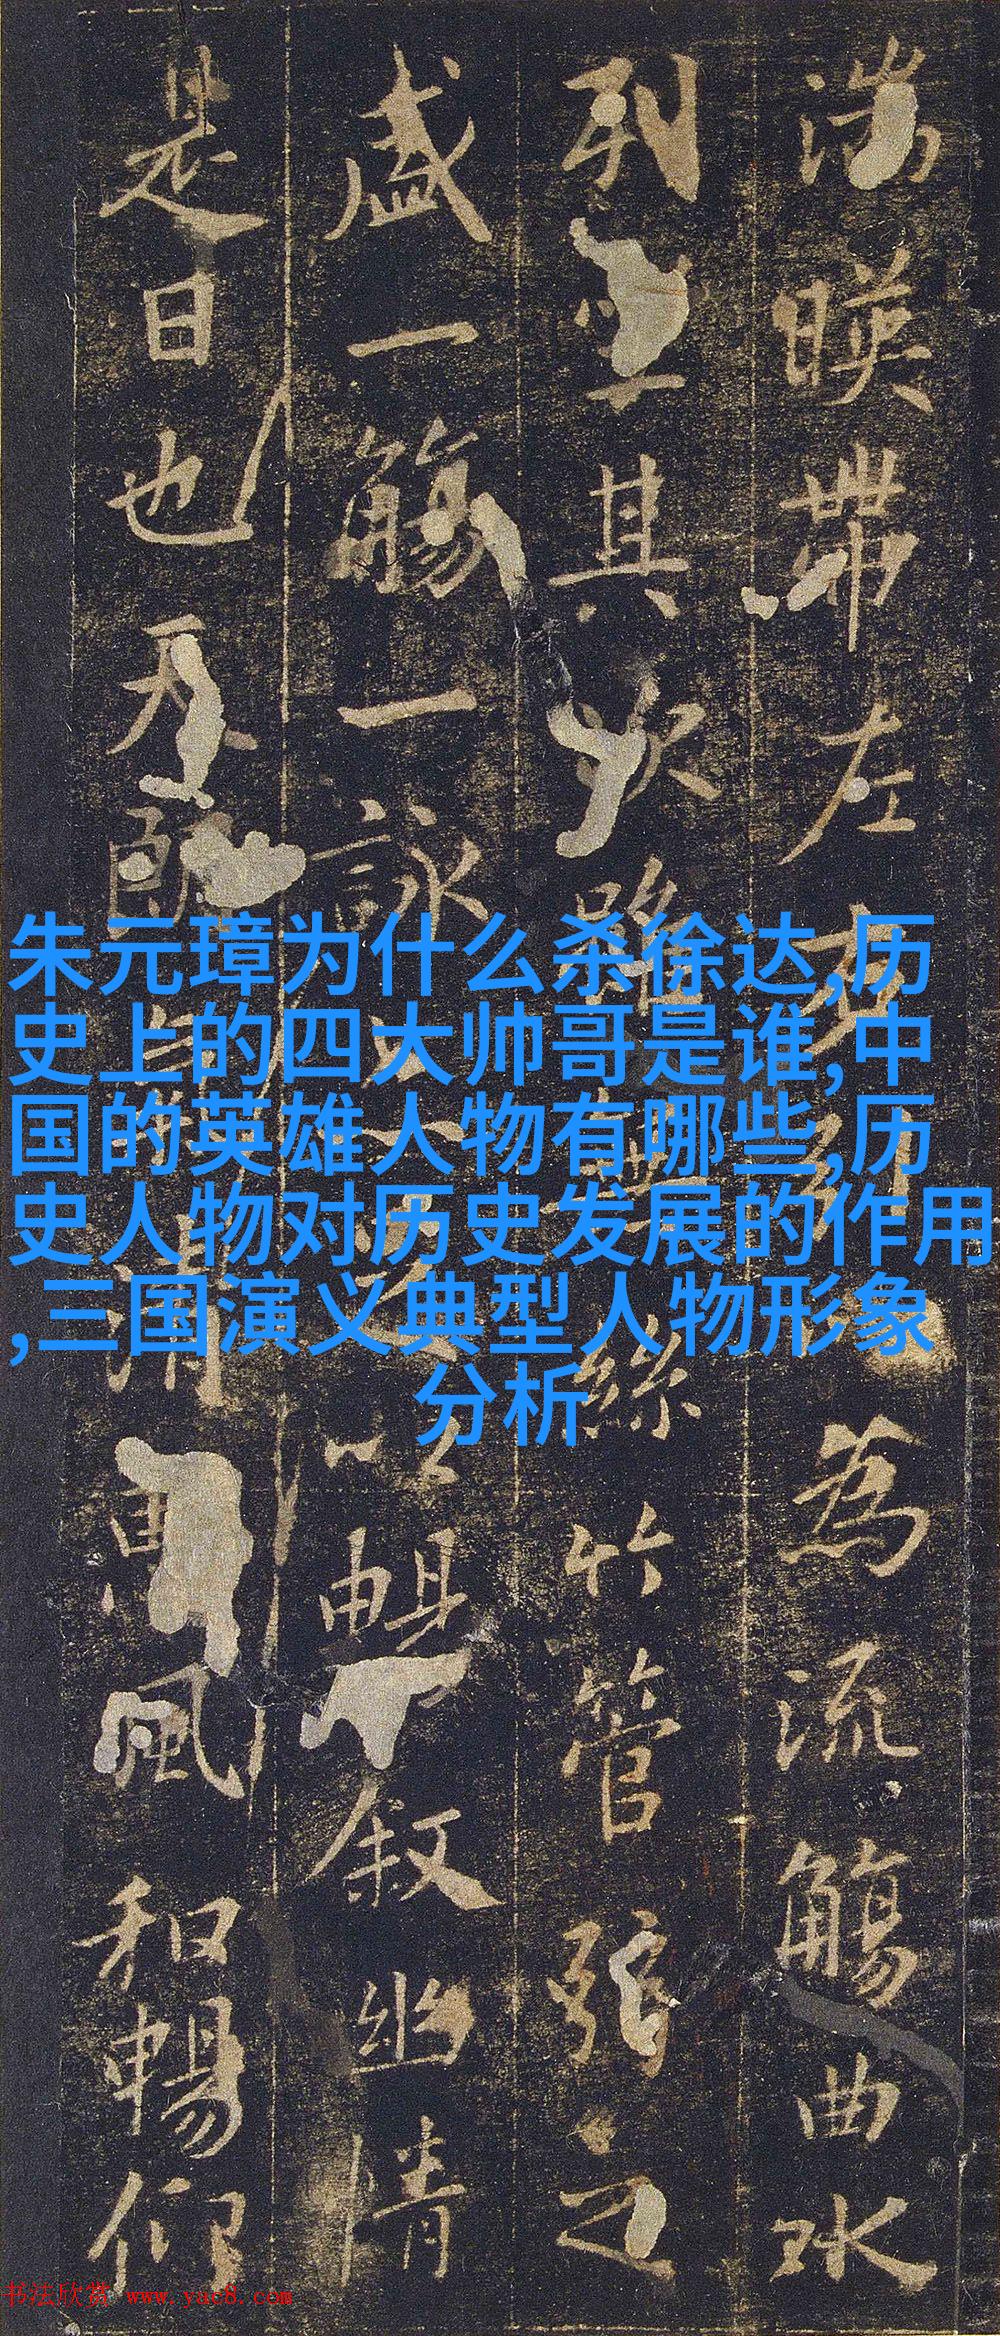 湍暎帶左右引以為流觴曲水
列坐其次雖無絲竹管弦之
盛一觴一詠亦足以暢叙幽情
是日也天朗氣清惠風和暢仰
朱元璋为什么杀徐达,历
史上的四大帅哥是谁,中
国的英雄人物有哪些,历
史人物对历史发展的作用
,三国演义典型人物形象
分析
书法欣赏 www.yac8.com